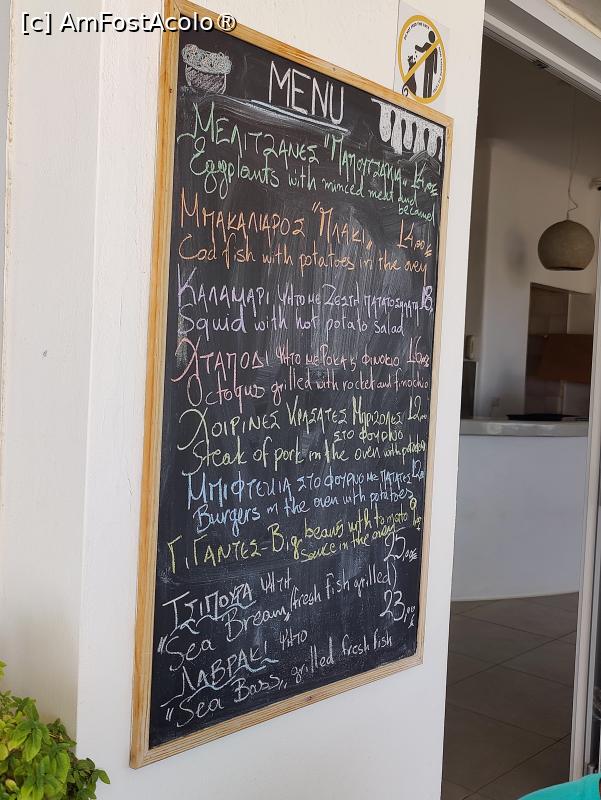 [c] AmFostAcolo®
MENU
ΜΕΛΙΤΖΑΝΕΣ "ΠΑΠΟΥΤΣΑΚΙΑ" 14,00€
Eggplants with minced meat and
becamel
ΜΠΑΚΑΛΙΑΡΟΣ "ΠΛΑΚΙ" 14,00€
Cod fish with potatoes in the oven
ΚΑΛΑΜΑΡΙ ΨΗΤΟ ΜΕ ΖΕΣΤΗ ΠΑΤΑΤΟΣΑΛΑΤΑ 18,
Squid with hot potato salad
ΧΤΑΠΟΔΙ ΨΗΤΟ ΜΕ ΡΟΚΑ & ΦΙΝΟΚΙΟ 16,00€
Octopus grilled with rocket and finochio
ΧΟΙΡΙΝΕΣ ΚΡΑΣΑΤΕΣ ΜΠΡΙΖΟΛΕΣ 12,00
ΣΤΟ ΦΟΥΡΝΟ
Steak of pork in the oven with potatoes
ΜΠΙΦΤΕΚΙΑ ΣΤΟ ΦΟΥΡΝΟ ΜΕ ΠΑΤΑΤΕΣ 12,
Burgers in the oven with potatoes
ΓΙΓΑΝΤΕΣ - Big beans with tomato 8
sauce in the oven
25,00€
ΤΣΙΠΟΥΡΑ ΨΗΤΗ
"Sea Bream" (fresh fish grilled)
23,00€
ΛΑΒΡΑΚΙ ΨΗΤΟ
"Sea Bass" grilled fresh fish